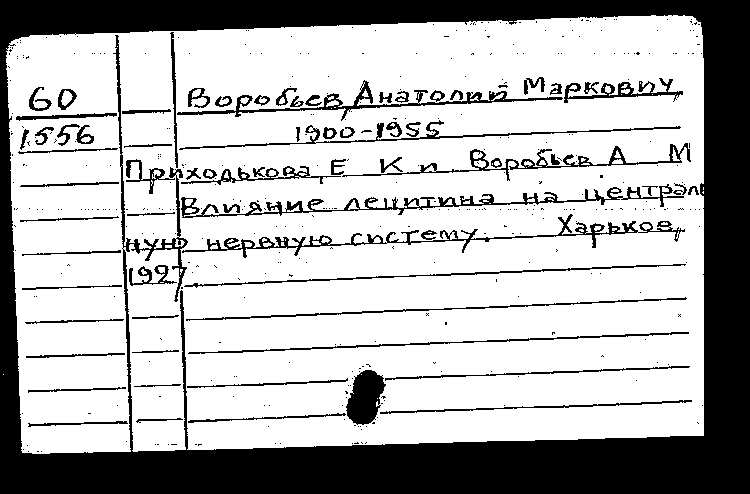 60 Воробьев, Анатолий Маркович,
1556 1900-1955
Приходькова, Е К и Воробьев А М
Влияние лецитина на централь
ную нервную систему. Харьков,
1927.